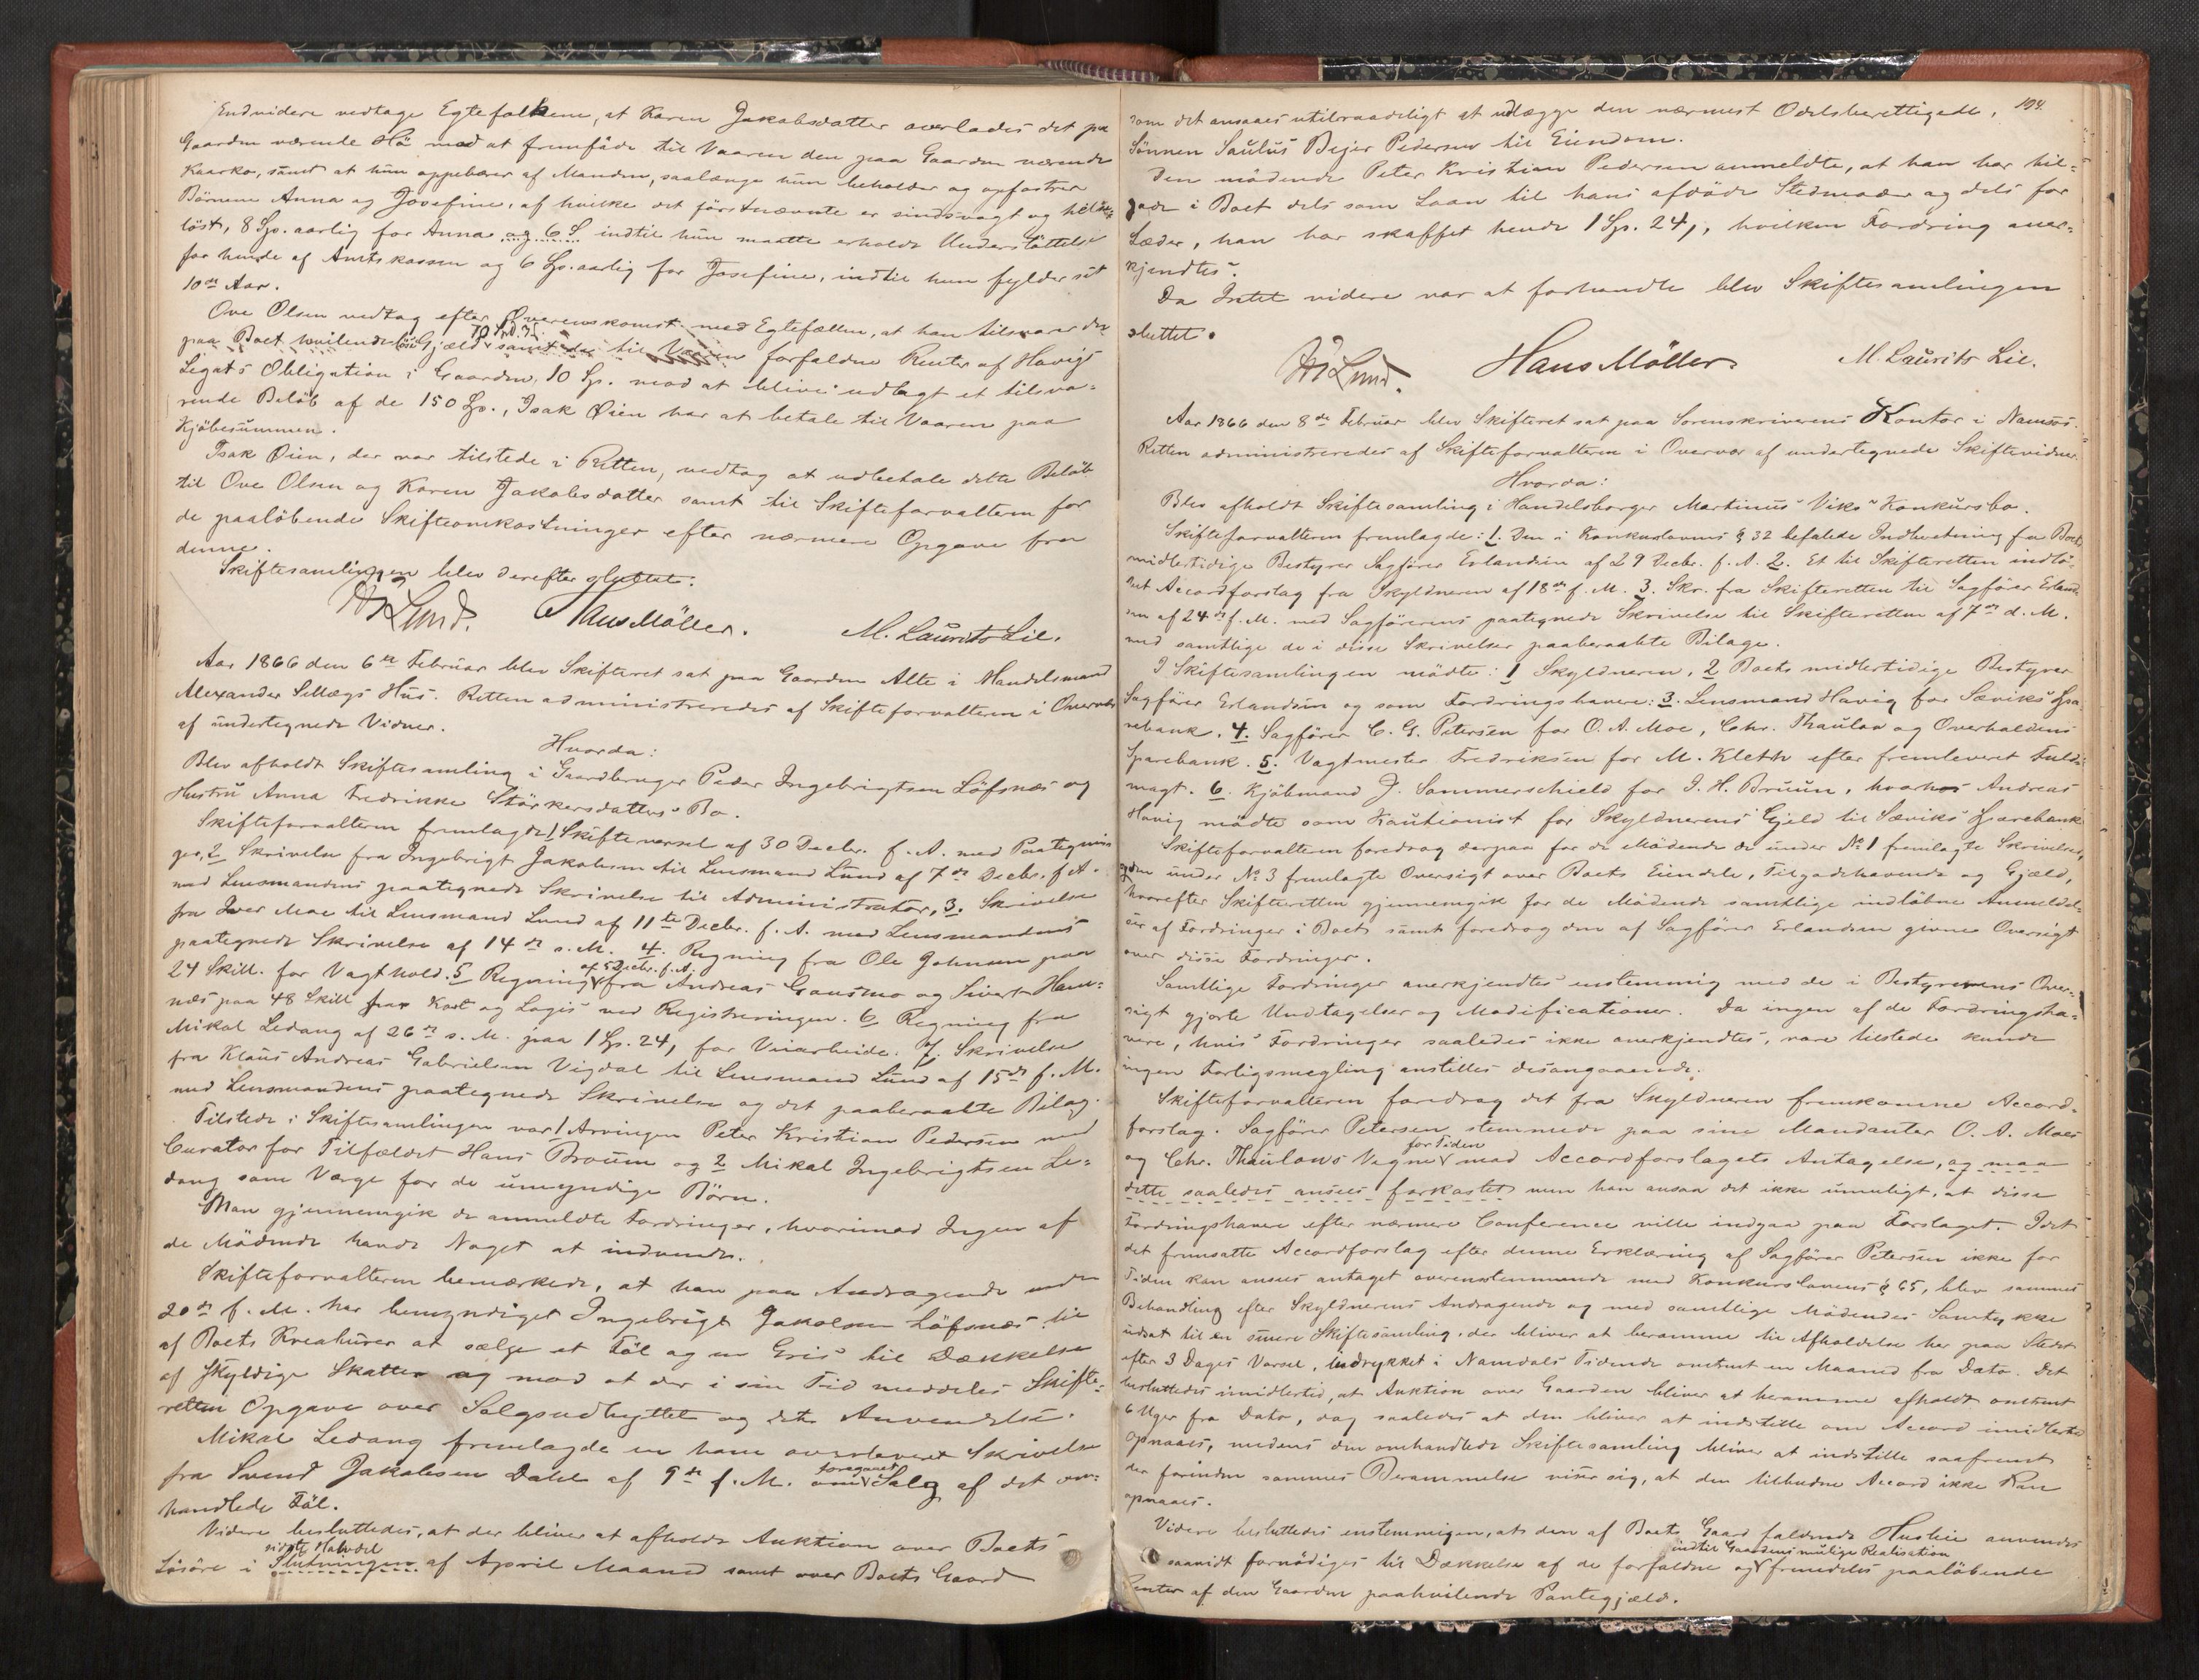 Endvidere vedtage Egtefolkene, at Karen Jakobsdatter overlades det paa
Gaarden værende Hö mod at fremföde til Vaaren den paa Gaarden værende
Kaarko, samt at hun oppebærer af Manden, saalænge hun beholder og opfostrer
Börnene Anna og Josefine, af hvilke det förstnævnte er sindssvagt og hjælpe-
löst, 8 Sp. aarlig for Anna og 6 S indtil hun maatte erholde Understöttelse
for hende af Amtskassen og 6 Sp. aarlig for Josefine, indtil hun fylder sit
10de Aar.
Ove Olsen vedtog efter Overenskomst med Egtefællen, at han tilsvarer den
paa Boet hvilende löse Gjæld samt den til Vaaren forfaldne Rente af Havigs
Legats Obligation i Gaarden, 10 Sp. mod at blive udlagt et tilsva-
rende Belöb af de 150 Sp., Isak Øien har at betale til Vaaren paa
Kjöbesummen.
Isak Øien, der var tilstede i Retten, vedtog at udbetale dette Belöb
til Ove Olsen og Karen Jakobsdatter samt til Skifteforvalteren for
de paalöbende Skifteomkostninger efter nærmere Opgave fra
denne.
Skiftesamlingen blev derefter sluttet.
Lund. Hans Möller. M. Laurits Lie.
Aar 1866 den 6te Februar blev Skifteret sat paa Gaarden Alte i Handelsmand
Alexander Sellægs Hus. Retten administreredes af Skifteforvalteren i Overvær
af undertegnede Vidner.
Hvorda:
Blev afholdt Skiftesamling i Gaardbruger Peder Ingebrigtsen Löfsnæs og
Hustru Anna Fredrikke Störkersdatters Bo.
Skifteforvalteren fremlagde 1 Skiftevarsel af 30 Decbr. f. A. med Paategnin-
ger, 2 Skrivelse fra Ingebrigt Jakobsen til Lensmand Lund af 7de Decbr. f. A.
med Lensmandens paategnede Skrivelse til Administrator, 3. Skrivelse
fra Iver Moe til Lensmand Lund af 11te Decbr. f. A. med Lensmandens
paategnede Skrivelse af 14de s. M. 4. Regning fra Ole Johnsen paa
24 Skill. for Vagthold. 5 Regning af 5 Decbr. f. A. fra Andreas Gausmo og Sivert Ham-
næs paa 48 Skill for Kost og Logis ved Registreringen. 6 Regning fra
Mikal Ledang af 26de s. M. paa 1 Sp. 24, for Veiarbeide. 7. Skrivelse
fra Klaus Andreas Gabrielsen Vigdal til Lensmand Lund af 15de f. M.
med Lensmandens paategnede Skrivelse og det paaberaabte Bilag.
Tilstede i Skiftesamlingen var 1 Arvingen Peter Kristian Pedersen med
Curator for Tilfældet Hans Broum og 2 Mikal Ingebrigtsen Le-
dang som Værge for de umyndige Börn.
Man gjennemgik de anmeldte Fordringer, hvorimod Ingen af
de Mödende havde Noget at indvende.
Skifteforvalteren bemærkede, at han paa Andragende under
20de f. M. har bemyndiget Ingebrigt Jakobsen Löfsnæs til
af Boets Kreaturer at sælge et Föl og en Gris til Dækkelse
af skyldige Skatter og mod at der i sin Tid meddeles Skifte-
retten Opgave over Salgsudbyttet og dets Anvendelse.
Mikal Ledang fremlagde en ham overleveret Skrivelse
fra Svend Jakobsen Dahl af 9de f. M. om foregaaet Salg af det om-
handlede Föl.
Videre besluttedes, at der bliver at afholde Auktion over Boets
Lösöre i sidste Halvdel Slutningen af April Maaned samt over Boets Gaard
194.
som det ansaaes utilraadeligt at udlægge den nærmest Odelsberettigede,
Sönnen Saulus Bejer Pedersen til Eiendom.
Den mödende Peter Kristian Pedersen anmeldte, at han har til-
gode i Boet dels som Laan til hans afdöde Stedmoder og dels for
Læder, han har skaffet hende 1 Sp. 24, hvilken Fordring aner-
kjendtes.
Da Intet videre var at forhandle blev Skiftesamlingen
sluttet.
Lund. Hans Möller. M. Laurits Lie.
Aar 1866 den 8de Februar blev Skifteret sat paa Sorenskriverens Kontor i Namsos.
Retten administreredes af Skifteforvalteren i Overvær af undertegnede Skiftevidner.
Hvorda:
Blev afholdt Skiftesamling i Handelsborger Martinus Viks Konkursbo.
Skifteforvalteren fremlagde: 1. Den i Konkurslovens § 32 befalede Indberetning fra Boets
midlertidige Bestyrer Sagförer Erlandsen af 29 Decbr. f. A. 2. Et til Skifteretten indlö-
bet Accordforslag fra Skyldneren af 18de f. M. 3. Skr. fra Skifteretten til Sagförer Erland-
sen af 24de f. M. med Sagförerens paategnede Skrivelse til Skifteretten af 7de d. M.
med samtlige de i disse Skrivelser paaberaabte Bilage.
I Skiftesamlingen mödte: 1 Skyldneren, 2 Boets midlertidige Bestyrer
Sagförer Erlandsen og som Fordringshavere: 3. Lensmand Havig for Sæviks Spa-
rebank. 4. Sagförer C. G. Petersen for O. A. Moe, Chr. Thaulow og Overhaldens
Sparebank. 5. Vagtmester Fredriksen for M. Kleth efter fremleveret Fuld-
magt. 6. Kjöbmand J. Sommerschield for J. H. Bruun, hvorhos Andreas
Havig mödte som Kautionist for Skyldnerens Gjeld til Sæviks Sparebank
Skifteforvalteren foredrog derpaa for de Mödende de under No 1 fremlagte Skrivelser,
og den under No 3 fremlagte Oversigt over Boets Eiendele, Tilgodehavende og Gjæld,
hvorefter Skifteretten gjennemgik for de Mödende samtlige indlöbne Anmeldel-
ser af Fordringer i Boet, samt foredrog den af Sagförer Erlandsen givne Oversigt
over disse Fordringer.
Samtlige Fordringer anerkjendtes enstemmig med de i Bestyrerens Over-
sigt gjorte Undtagelser og Modificationer. Da ingen af de Fordringsha-
vere, hvis Fordringer saaledes ikke anerkjendtes, vare tilstede kunde
ingen Forligsmegling anstilles desangaaende.
Skifteforvalteren foredrog det fra Skyldneren fremkomne Accord-
forslag. Sagförer Petersen stemmede paa sine Mandanter O. A. Moes
og Chr. Thaulows Vegne for Tiden mod Accordforslagets Antagelse, og maa
dette saaledes ansees forkastet men han ansaa det ikke umuligt, at disse
Fordringshavere efter nærmere Conference ville indgaa paa Forslaget. Idet
det fremsatte Accordforslag efter denne Erklæring af Sagförer Petersen ikke for
Tiden kan ansees antaget overensstemmende med Konkurslovens § 65, blev sammes
Behandling efter Skyldnerens Andragende og med samtlige Mödendes Samtykke
udsat til en senere Skiftesamling, der bliver at beramme til Afholdelse her paa Stedet
efter 3 Dages Varsel, indrykket i Namdals Tidende omtrent en Maaned fra Dato. Det
besluttedes imidlertid, at Auktion over Gaarden bliver at beramme afholdt omtrent
6 Uger fra Dato, dog saaledes at den bliver at indstille om Accord imidlertid
opnaaes, medens den omhandlede Skiftesamling bliver at indstille saafremt
der forinden sammes Berammelse viser sig, at den tilbudne Accord ikke kan
opnaaes.
Videre besluttedes enstemmigen, at den af Boets Gaard faldende Husleie anvendes
saavidt fornödiges til Dækkelse af de forfaldne og indtil Gaardens mulige Realisation fremdeles paalöbende
Renter af den Gaarden paahvilende Pantegjæld.